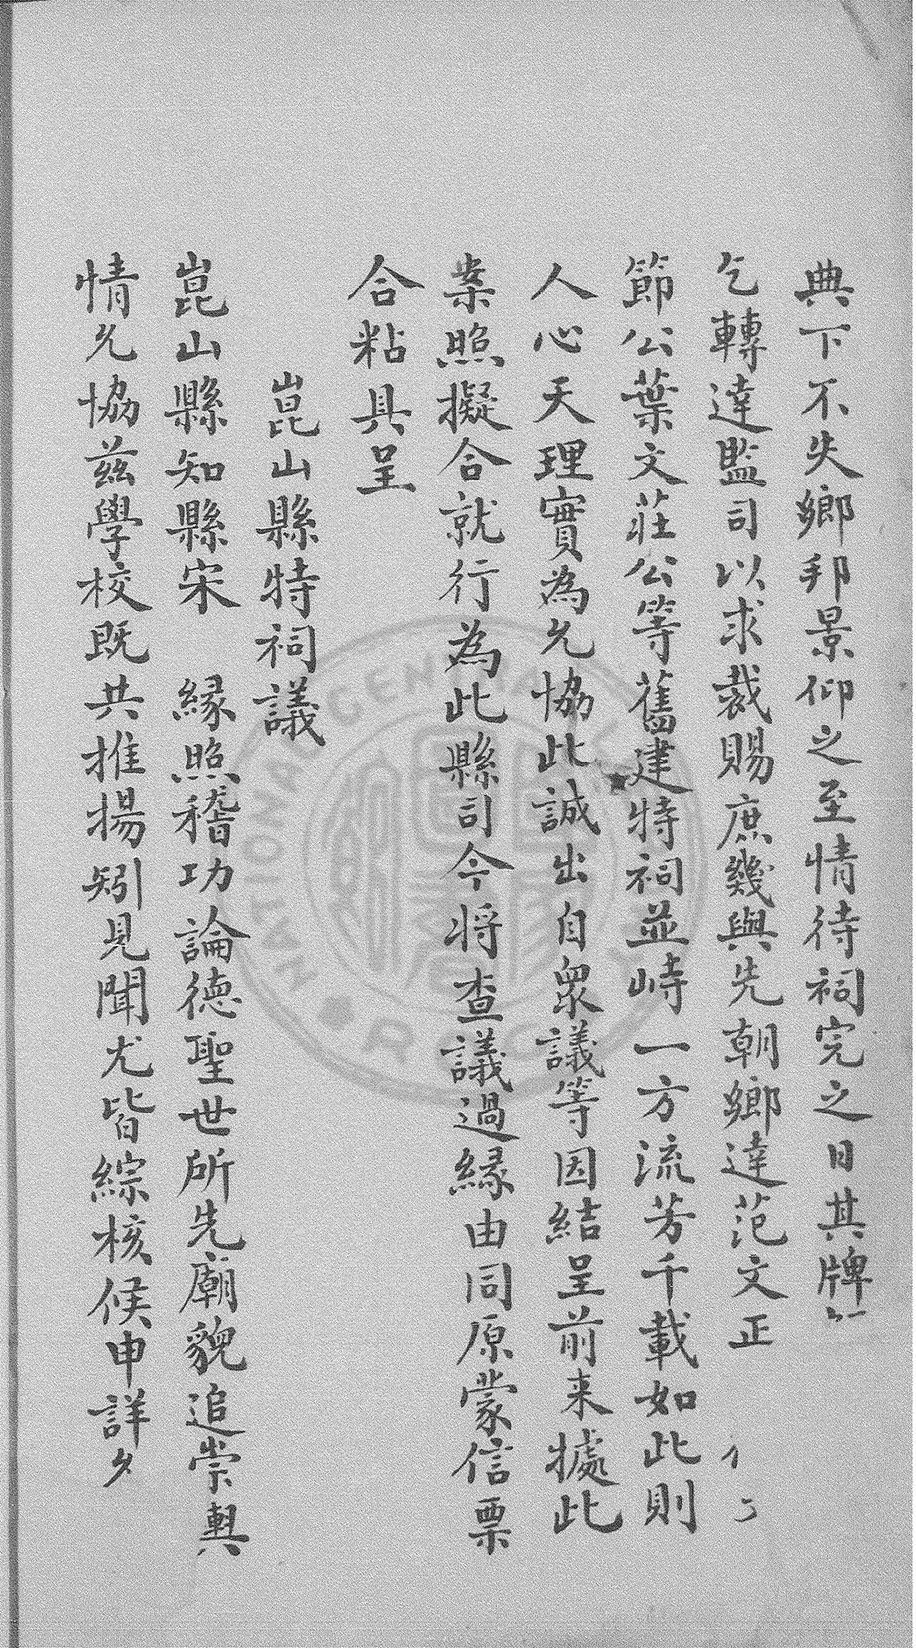 典下不失鄉邦景仰之至情待祠完之日其牌
乞轉達監司以求裁賜庶幾與先朝鄉達范文正
節公葉文莊公等舊建特祠並峙一方流芳千載如此則
人心天理實為允協此誠出自眾議等因結呈前来據此
案照擬合就行為此縣司今将查議過緣由同原蒙信票
合粘具呈
崑山縣特祠議
崑山縣知縣宋 緣照稽功論德聖世所先廟貌追崇輿
情允協茲學校既共推揚矧見聞尤皆綜核候申詳
NATIONAL CENTRAL LIBRARY R.O.C.